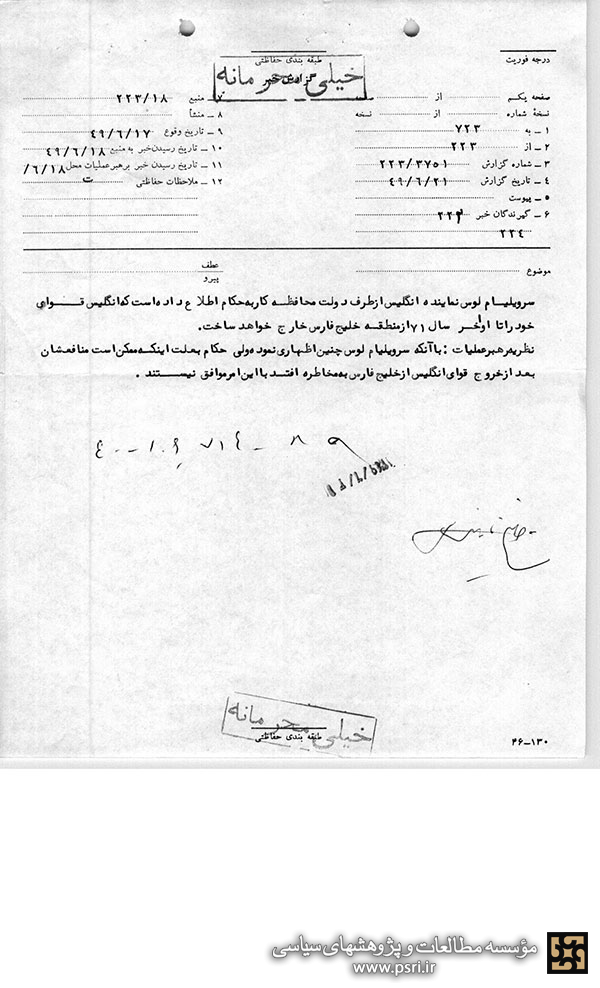 درجه فوریت
طبقه بندی حفاظتی
خیلی محرمانه
گزارش خبر
صفحه یکم از
نسخهٔ شماره از نسخه
۱ ــ به ۷۲۳
۲ ــ از ۲۲۳
۳ ــ شماره گزارش ۲۲۳/۳۷۵۱
۴ ــ تاریخ گزارش ۴۹/۶/۲۱
۵ ــ پیوست
۶ ــ گیرندگان خبر ۲۲۲
۲۲۴
۷ ــ منبع ۲۲۳/۱۸
۸ ــ منشأ
۹ ــ تاریخ وقوع ۴۹/۶/۱۷
۱۰ ــ تاریخ رسیدن خبر به منبع ۴۹/۶/۱۸
۱۱ ــ تاریخ رسیدن خبر برهبر عملیات محل ۶/۱۸/
۱۲ ــ ملاحظات حفاظتی ت
موضوع
عطف
پیرو
سرویلیام لوس نماینده انگلیس ازطرف دولت محافظه کاربه حکام اطلاع داده است که انگلیس قوای
خود را تا اواخر سال ۷۱ ازمنطقه خلیج فارس خارج خواهد ساخت.
نظریه رهبرعملیات : با آنکه سرویلیام لوس چنین اظهاری نموده ولی حکام بعلت اینکه ممکن است منافعشان
بعد ازخروج قوای انگلیس ازخلیج فارس به مخاطره افتد با این امر موافق نیستند .
خیلی محرمانه
طبقه بندی حفاظتی
۴۶-۱۳۰
مؤسسه مطالعات و پژوهشهای سیاسی
www.psri.ir